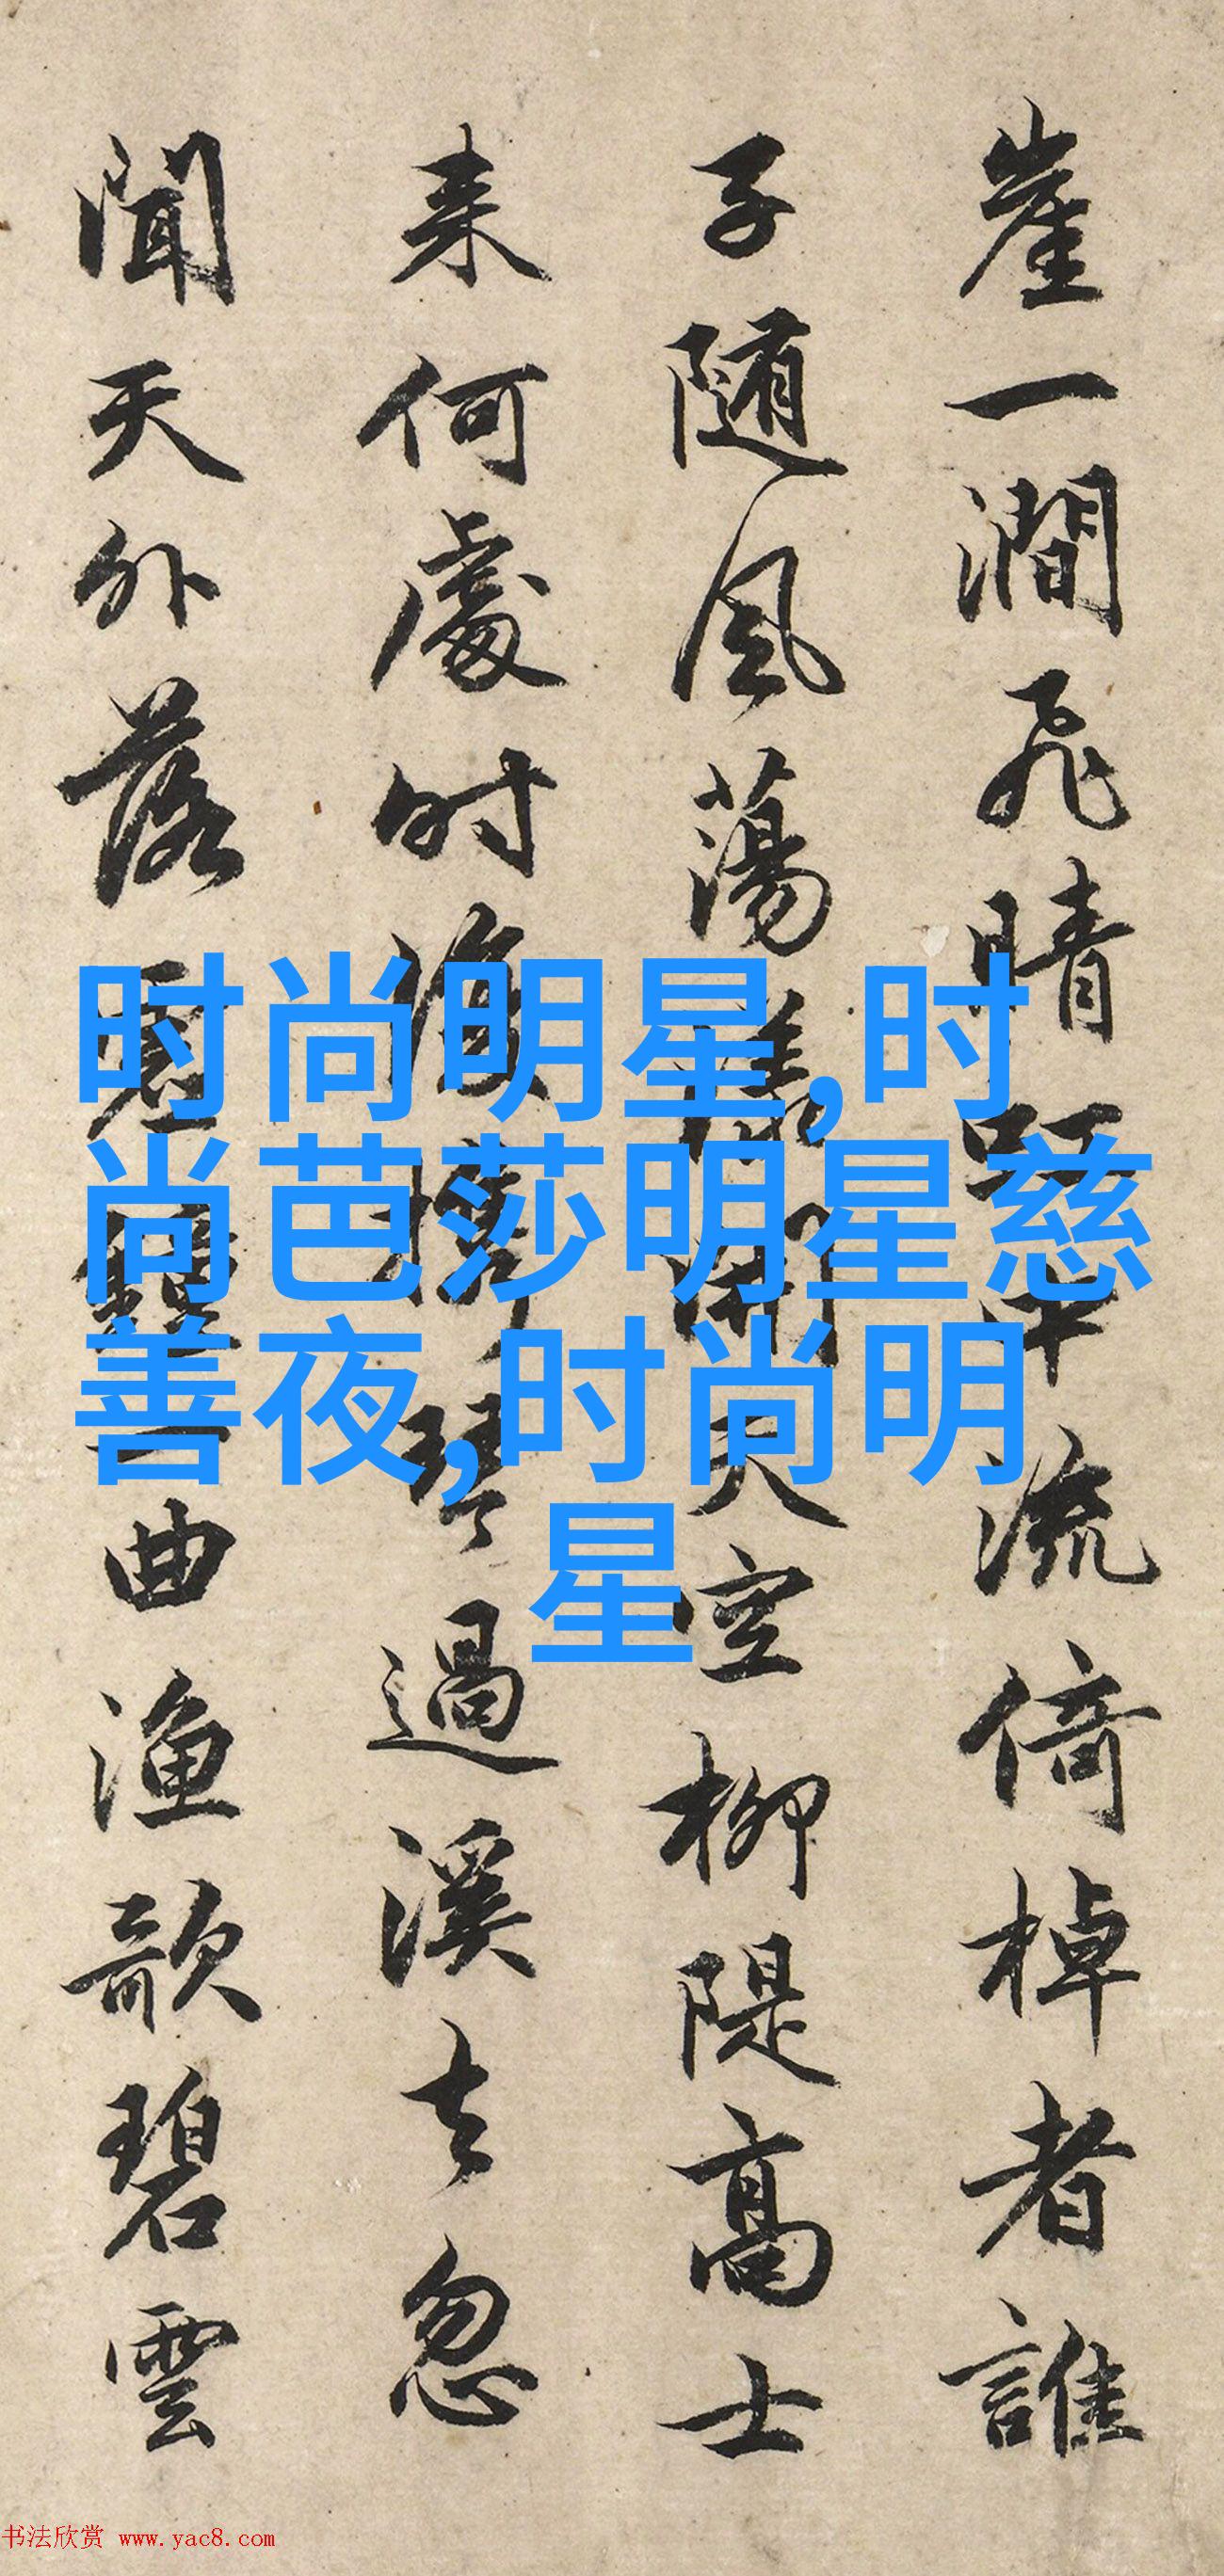 崖一澗飛晴
流倚棹者誰
子随風蕩
天空柳隄高士
来何處时
琴過溪去忽
聞天外落
一曲漁歌碧雲
时尚明星,时
尚芭莎明星慈
善夜,时尚明
星
书法欣赏 www.yac8.com